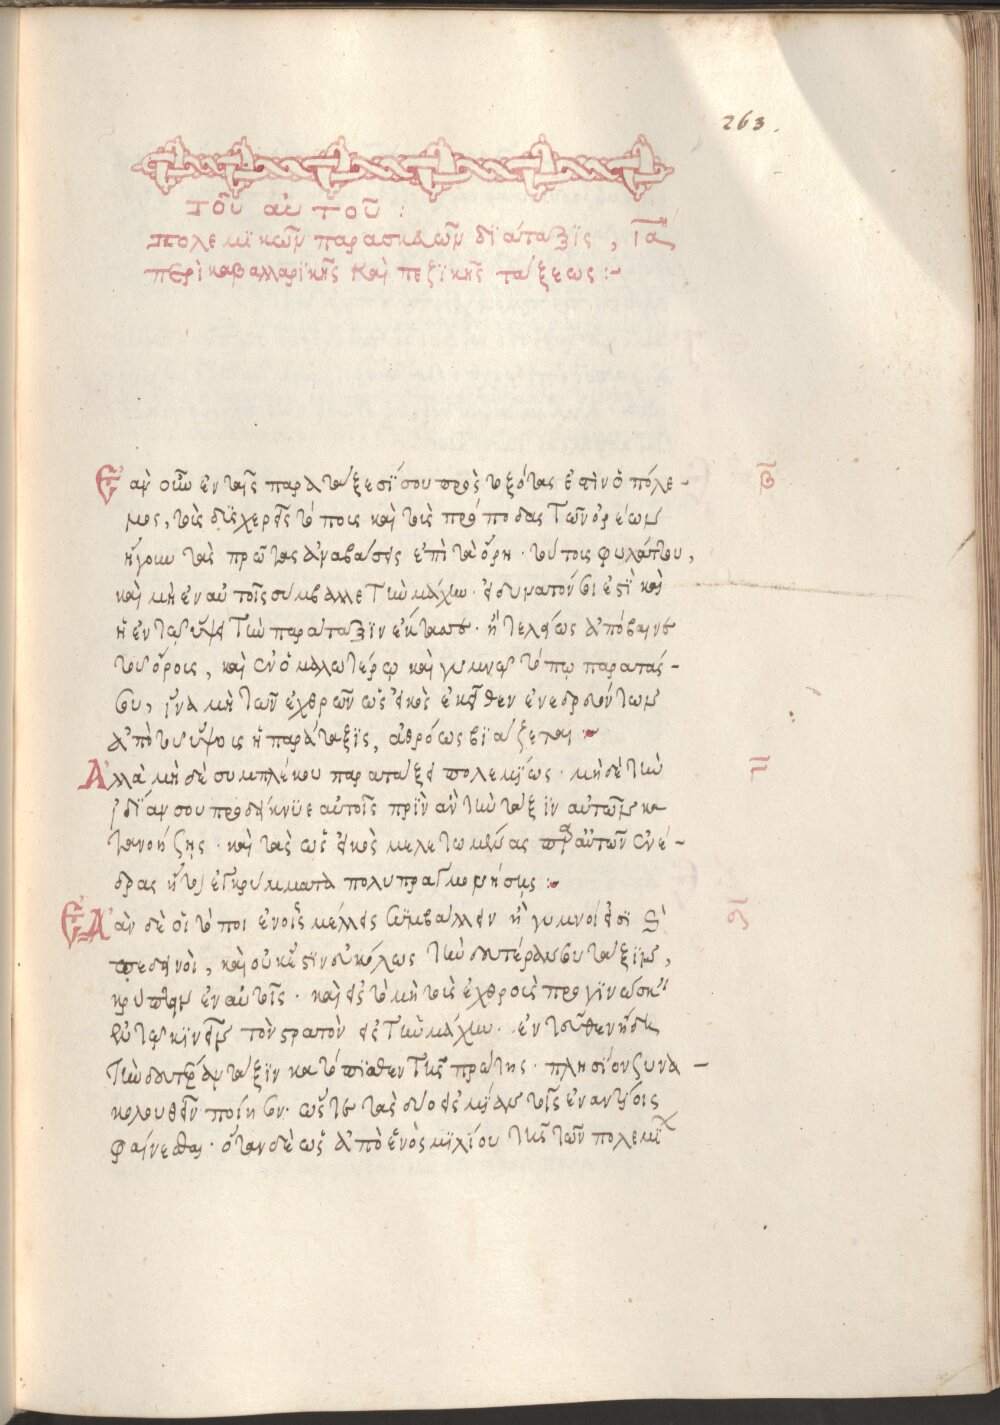 263.
τοῦ αὐτοῦ :
πολεμϊκῶν παρασκευῶν διάταξις, ια
περὶ καβαλλαρϊκῆς καὶ πεζικῆς τάξεως :~
Ἐὰν οὖν ἐν ταῖς παρατάξεσί σου πρὸς τοξότας ἐστὶν ὁ πόλε-
μος, τοὺς δυσχερεῖς τόπους καὶ τοὺς πρόποδας τῶν ὀρέων
ἤγουν τὰς πρώτας ἀναβάσεις ἐπὶ τὰ ὄρη. τούτοις φυλάττου,
καὶ μὴ ἐν αὐτοῖς σύμβαλλε τὴν μάχην. εἰ δυνατόν σοι ἐστὶ καὶ
ἢ ἐν τῷ ὕψει τὴν παράταξιν ἔκταττε. ἢ τελείως ἀπόβαινε
τοῦ ὄρους, καὶ ἐν ὁμαλωτέρῳ καὶ γυμνῷ τόπῳ παρατάσ-
σου, ἵνα μὴ τῶν ἐχθρῶν ὡς εἰκὸς ἐκεῖθεν ἐνεδρευόντων
ἀπὸ τοῦ ὕψους ἡ παράταξις, ἀθρόως βιάζεται :
β
Ἀλλὰ μὴ δὲ συμπλέκου παρατάξει πολεμίως. μὴ δὲ τὴν
ἰδίαν σου προδείκνυε αὐτοῖς πρὶν ἂν τὴν τάξιν αὐτῶν κα
τανοήσῃς. καὶ τὰς ὡς εἰκὸς μελετωμένας παρ' αὐτῶν ἐνέ-
δρας ἤτοι ἐγκρύμματα πολυπραγμονήσεις :
γ
Ἐὰν δὲ οἱ τόποι ἐν οἷς μέλλεις συμβάλλειν ἢ γυμνοί εἰσι
πεδεινοὶ, καὶ οὐκ ἔστιν εὐκόλως τὴν δευτέραν σου τάξιν,
κρύπτειν ἐν αὐτοῖς. καὶ εἰς τὸ μὴ τοὺς ἐχθροὺς προγινώσκ
ἐν τῷ κινεῖν τὸν στρατὸν εἰς τὴν μάχην. ἐντεῦθεν ἤδη
τὴν δευτέραν τάξιν κατόπισθεν τῆς πρώτης. πλησίον συνα-
κολουθεῖν ποίησον. ὥστε τὰς δύο εἰς μίαν τοῖς ἐναντίοις
φαίνεσθαι. ὅταν δὲ ὡς ἀπὸ ἑνὸς μιλίου τῆς τῶν πολεμι
δ